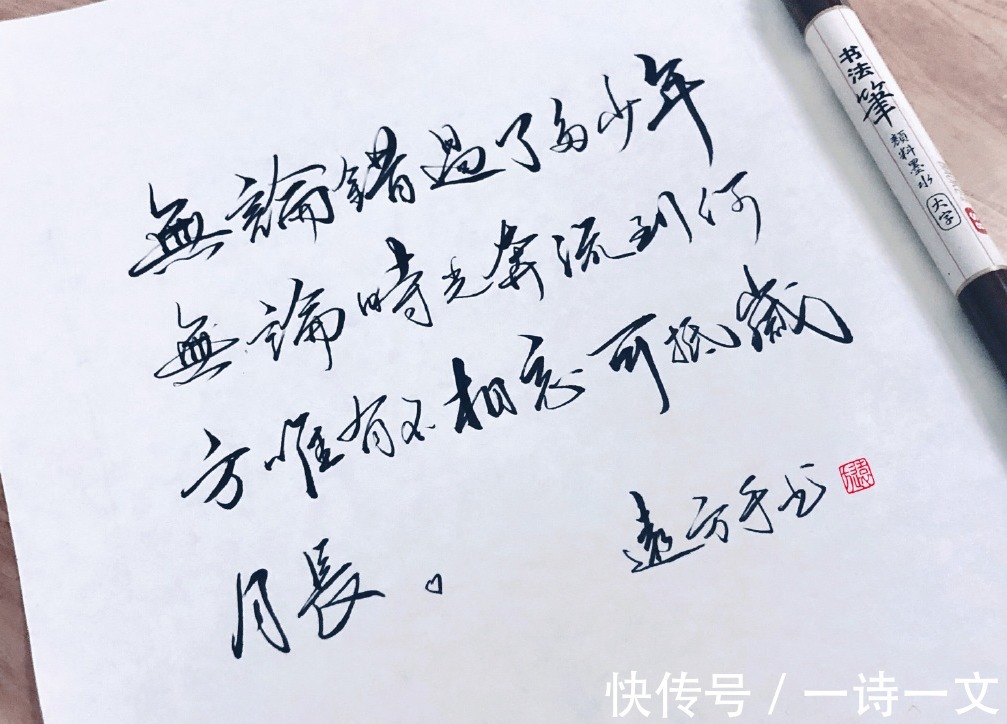 無論錯過了多少年
無論時光奔流到何
方唯有不相忘可抵歲
月長。
遠方手书
书法筆
顏料墨水
大字
快传号 / 一诗一文